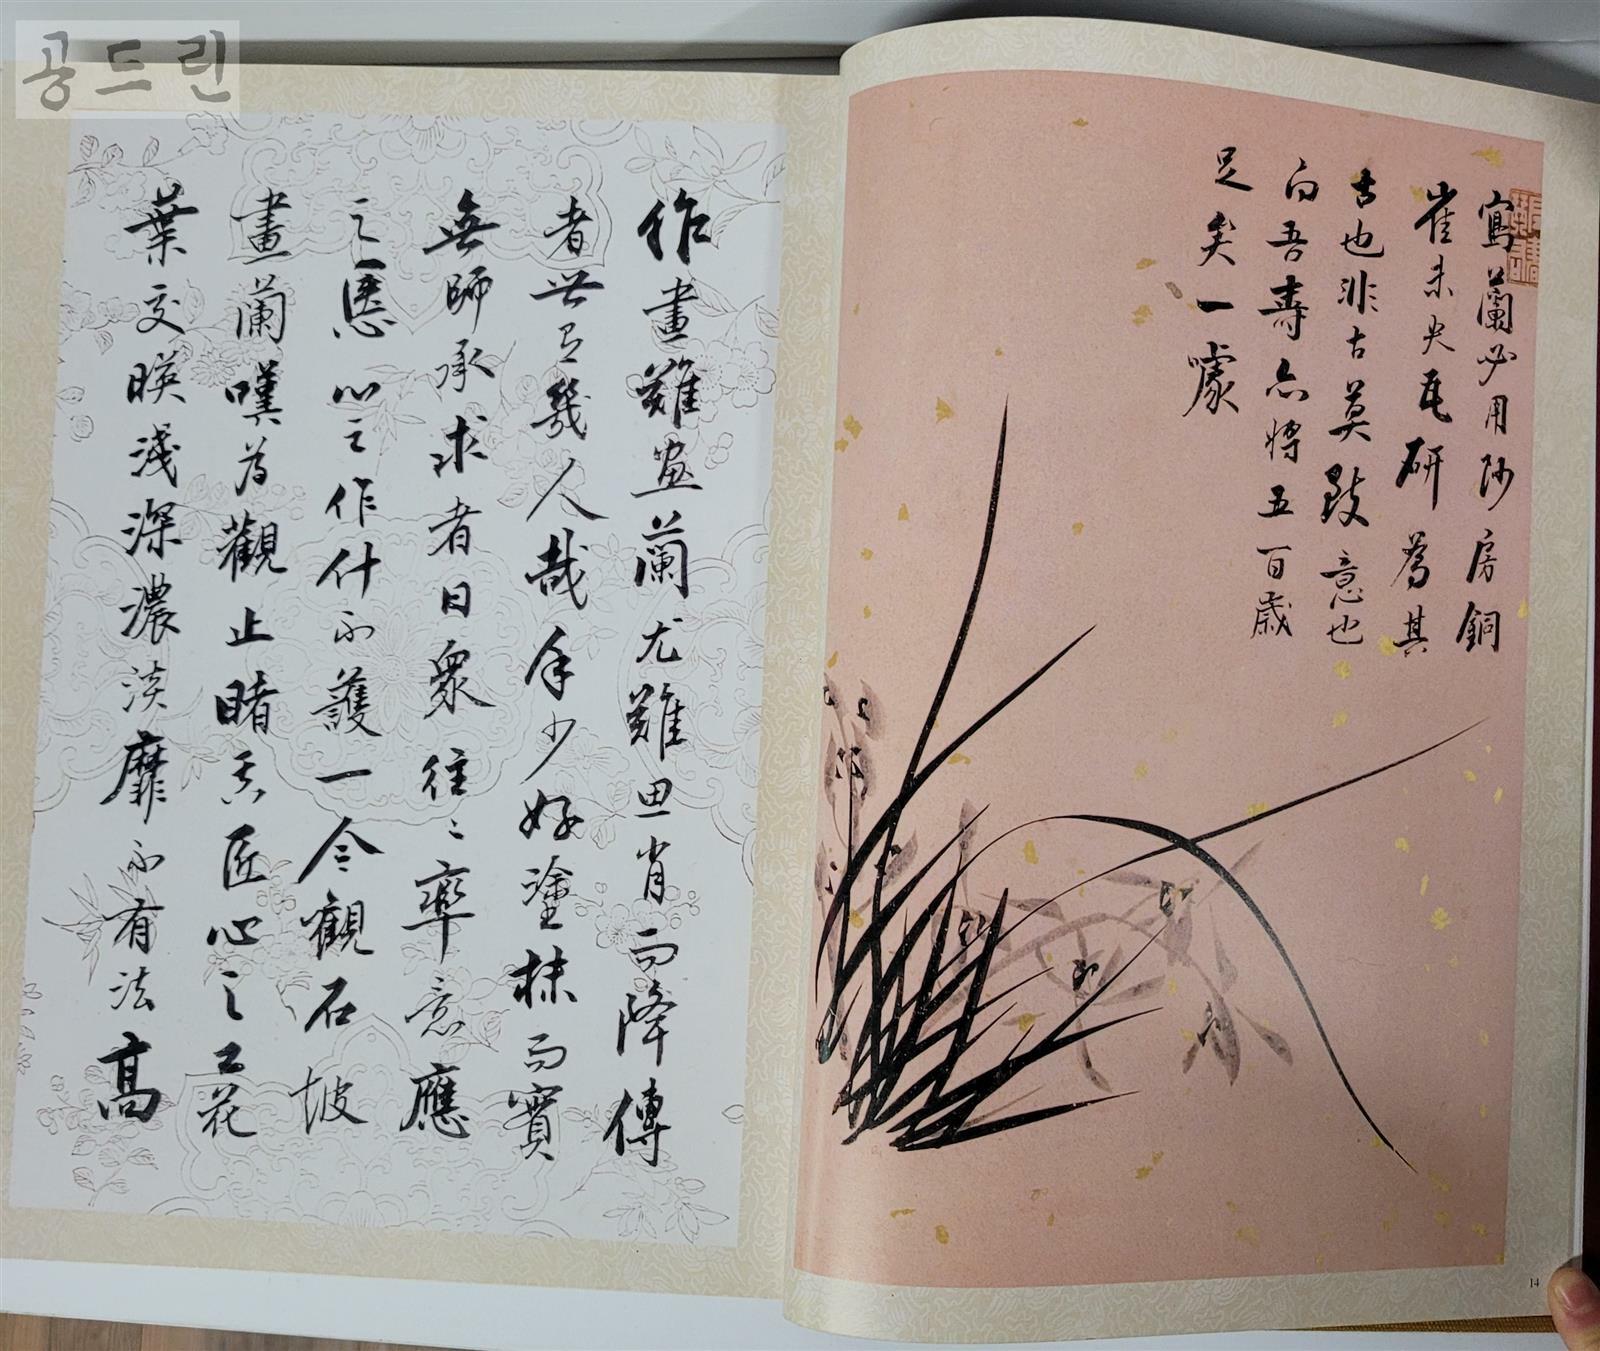 공드린
寫蘭必用陟房銅
崔未央瓦研爲其
古也非古莫致意也
向吾壽亦將五百歲
足矣一噱
作畫難畫蘭尤難思肖而降傳
者世有幾人哉余少好塗抹而實
無師承求者日衆往往率意應
之慝心之作什不護一今觀石坡
畫蘭嘆為觀止睹其匠心之工花
葉交映淺深濃淡靡不有法高
14